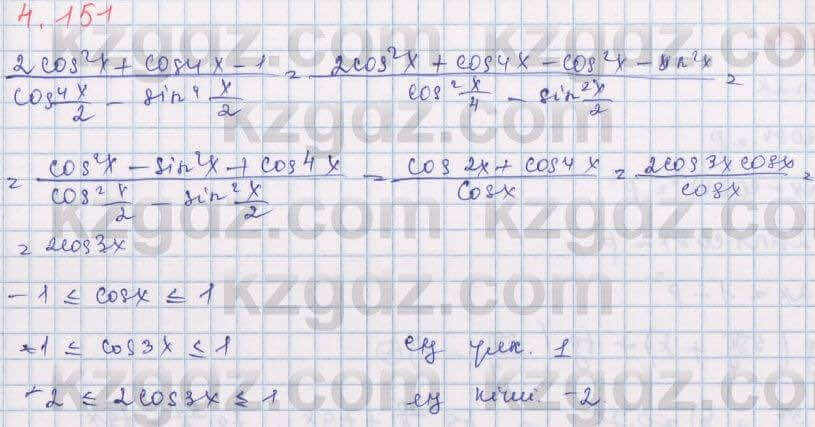 4.151
(2cos²x + cos4x - 1)/(cos⁴ x/2 - sin⁴ x/2) = (2cos²x + cos4x - cos²x - sin²x)/(cos² x/4 - sin² x/2) =
= (cos²x - sin²x + cos4x)/(cos² x/2 - sin² x/2) = (cos2x + cos4x)/cosx = (2cos3x cosx)/cosx =
= 2cos3x
-1 ≤ cosx ≤ 1
-1 ≤ cos3x ≤ 1 ең үлк. 1
-2 ≤ 2cos3x ≤ 1 ең кіші. -2
kzgdz.com